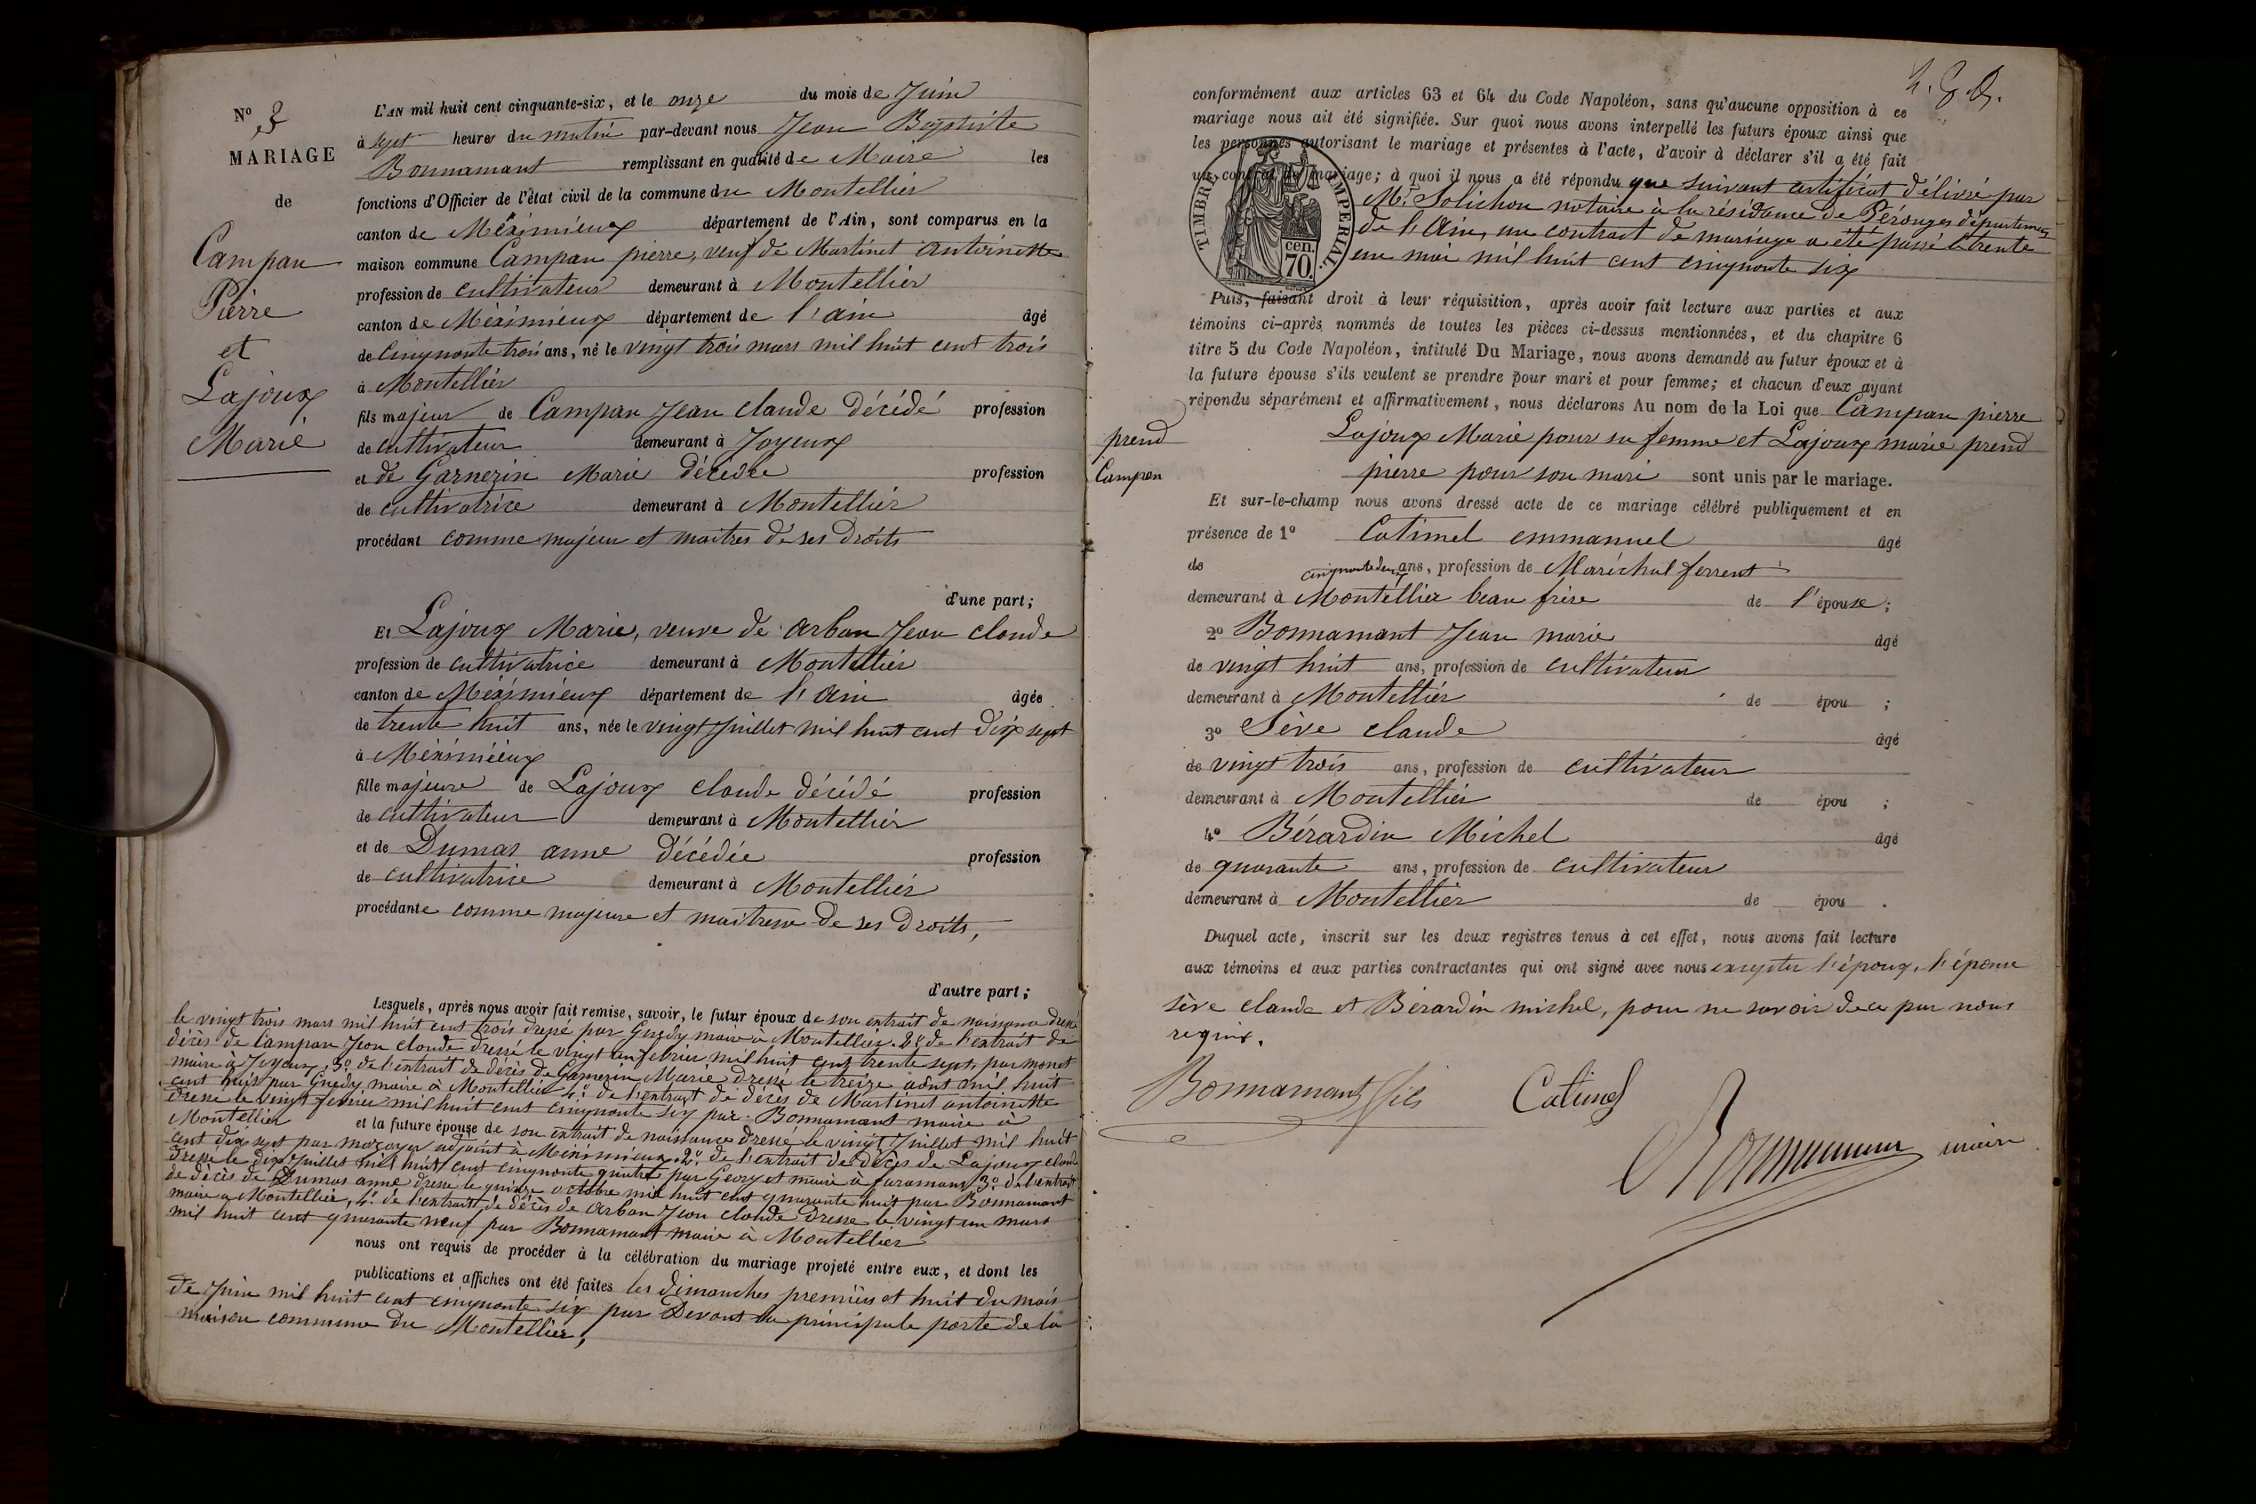 N° 3
MARIAGE
de
Campan
Pierre
et
Lajoux
Marie
L'AN mil huit cent cinquante-six, et le onze du mois de Juin
à sept heures du matin par-devant nous Jean Baptiste
Bonnamant remplissant en qualité de Maire les
fonctions d'Officier de l'état civil de la commune du Montellier
canton de Méximieux département de l'Ain, sont comparus en la
maison commune Campan pierre, veuf de Martinet antoinette
profession de cultivateur demeurant à Montellier
canton de Meximieux département de l'ain âgé
de cinquante trois ans, né le vingt trois mars mil huit cent trois
à Montellier
fils majeur de Campan Jean claude Décédé profession
de cultivateur demeurant à Joyeux
et de Garnerin Marie Décédée profession
de cultivatrice demeurant à Montellier
procédant comme majeur et maitres de ses droits
d'une part;
Et Lajoux Marie, veuve de arban Jean claude
profession de cultivatrice demeurant à Montellier
canton de Méximieux département de l'ain âgée
de trente huit ans, née le vingt Juillet mil huit cent dix sept
à Méximieux
fille majeure de Lajoux claude décédé profession
de cultivateur demeurant à Montellier
et de Dumas anne décédée profession
de cultivatrice demeurant à Montellier
procédante comme majeure et maitresse de ses droits,
d'autre part;
Lesquels, après nous avoir fait remise, savoir, le futur époux de son extrait de naissance dressé
le vingt trois mars mil huit cent trois dressé par Guedy maire à Montellier. 2° de l'extrait de
décès de Campan Jean claude dressé le vingt un fevrier mil huit cent trente sept par monet
maire à Joyeux, 3° de l'extrait de décès de Garnerin Marie dressé le treize août mil huit
cent huit par Guedy maire à Montellier 4° de l'extrait de décès de Martinet antoinette
dressé le vingt fevrier mil huit cent cinquante six par Bonnamant maire à
Montellier et la future épouse de son extrait de naissance dressé le vingt Juillet mil huit
cent dix sept par adjoint à Méximieux. 2° de l'extrait de décès de Lajoux claude
dressé le dix Juillet mil huit cent cinquante quatre par Georget maire à faramans 3° de l'extrait
de décès de Dumas anne dressé le quinze octobre mil huit cent quarante huit par Bonnamant
maire à Montellier, 4° de l'extrait de décès de arban Jean claude dressé le vingt un mars
mil huit cent quarante neuf par Bonnamant maire à Montellier
nous ont requis de procéder à la célébration du mariage projeté entre eux, et dont les
publications et affiches ont été faites les dimanches premiers et huit du mois
de Juin mil huit cent cinquante six par Devant la principale porte de la
maison commune du Montellier,
conformément aux articles 63 et 64 du Code Napoléon, sans qu'aucune opposition à ce
mariage nous ait été signifiée. Sur quoi nous avons interpellé les futurs époux ainsi que
les personnes autorisant le mariage et présentes à l'acte, d'avoir à déclarer s'il a été fait
un contrat de mariage; à quoi il nous a été répondu que suivant certificat délivré par
Mr. Solichon notaire à la résidance de Pérouges département
de l'Ain, un contract de mariage a été passé le trente
un mai mil huit cent cinquante six
TIMBRE IMPERIAL.
cen.
70.
Puis, faisant droit à leur réquisition, après avoir fait lecture aux parties et aux
témoins ci-après nommés de toutes les pièces ci-dessus mentionnées, et du chapitre 6
titre 5 du Code Napoléon, intitulé Du Mariage, nous avons demandé au futur époux et à
la future épouse s'ils veulent se prendre pour mari et pour femme; et chacun d'eux ayant
répondu séparément et affirmativement, nous déclarons Au nom de la Loi que Campan pierre
prend Lajoux Marie pour sa femme et Lajoux marie prend
Campan pierre pour son mari sont unis par le mariage.
Et sur-le-champ nous avons dressé acte de ce mariage célébré publiquement et en
présence de 1° Catimel emmanuel âgé
de cinquante deux ans, profession de Maréchal ferrent
demeurant à Montellier beau frère de l'épouse;
2° Bonnamant Jean marie âgé
de vingt huit ans, profession de cultivateur
demeurant à Montellier de épou ;
3° Sève claude âgé
de vingt trois ans, profession de cultivateur
demeurant à Montellier de épou ;
4° Bérardin Michel âgé
de quarante ans, profession de cultivateur
demeurant à Montellier de épou .
Duquel acte, inscrit sur les deux registres tenus à cet effet, nous avons fait lecture
aux témoins et aux parties contractantes qui ont signé avec nous exceptés l'époux, l'épouse
sève claude et Bérardin michel, pour ne savoir de ce par nous
requis.
Bonnamant fils Catimel
Bonnamant maire